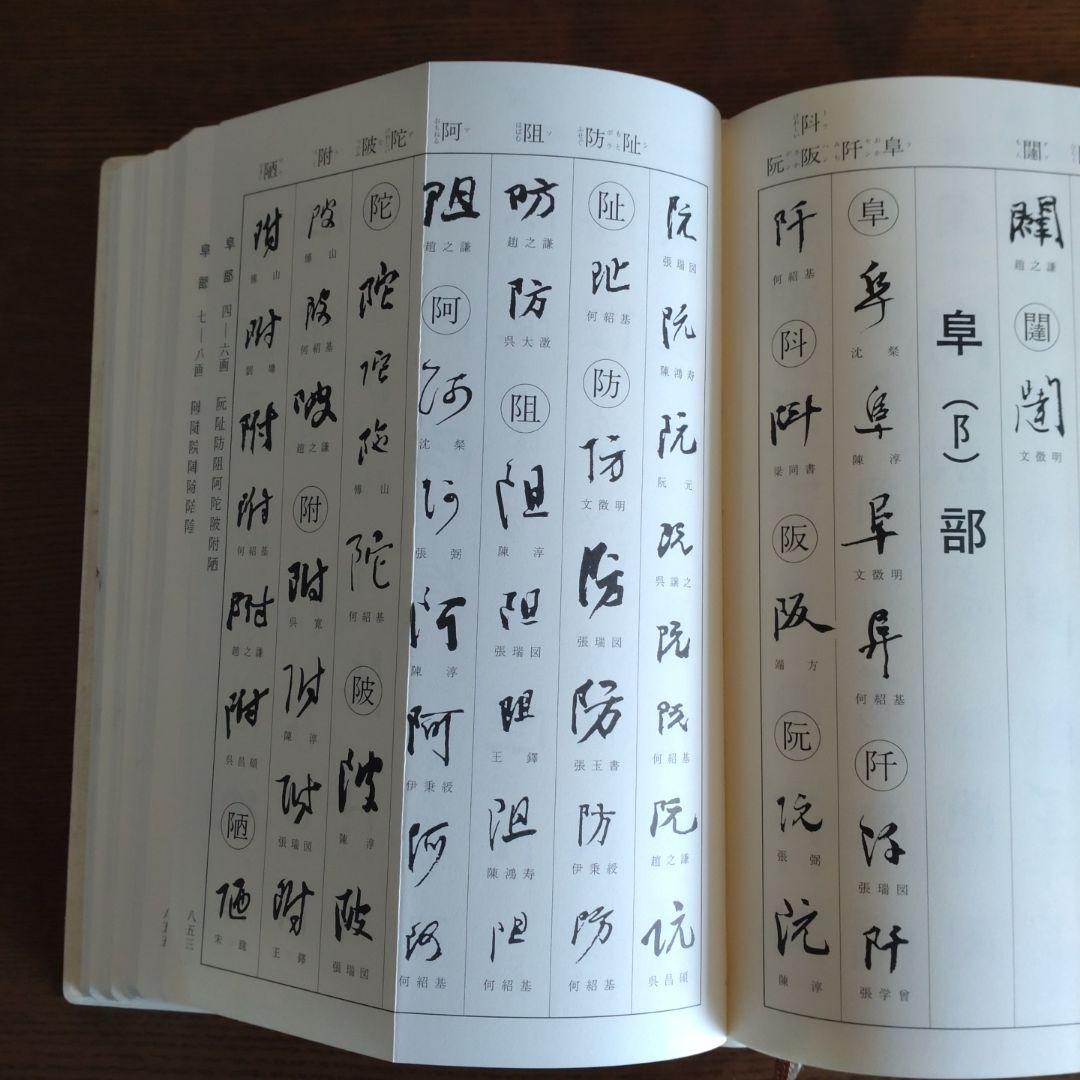 闥
趙之謙
闥
闥
文徵明
阜(阝)部
阮阪阡阜
㪷
阜
阜
沈粲
阜
陳淳
阜
文徵明
阜
何紹基
阡
阡
張瑞図
阡
張学曾
阡
何紹基
梁同書
阪
阪
端方
阮
阮
張弼
阮
陳淳
阯
防
阻
阿
陀
陂
附
陋
阮
張瑞図
阮
陳鴻寿
阮
阮元
阮
呉讓之
阮
阮
何紹基
阮
趙之謙
阮
呉昌碩
阯
阯
何紹基
防
防
文徵明
防
張瑞図
防
張玉書
防
伊秉綬
防
何紹基
防
趙之謙
防
呉大澂
阻
阻
陳淳
阻
張瑞図
阻
王鐸
阻
陳鴻寿
阻
何紹基
阻
趙之謙
阿
阿
沈粲
阿
張弼
阿
陳淳
阿
伊秉綬
阿
阿
何紹基
陀
陀
陀
陀
傅山
陀
何紹基
陂
陂
陳淳
陂
張瑞図
陂
傅山
陂
何紹基
陂
趙之謙
附
附
呉寛
附
陳淳
附
張瑞図
附
王鐸
附
傅山
附
附
附
何紹基
附
趙之謙
附
呉昌碩
陋
陋
阜部 四—六画 阮阯防阻阿陀陂附陋
阜部 七—八画
八五三